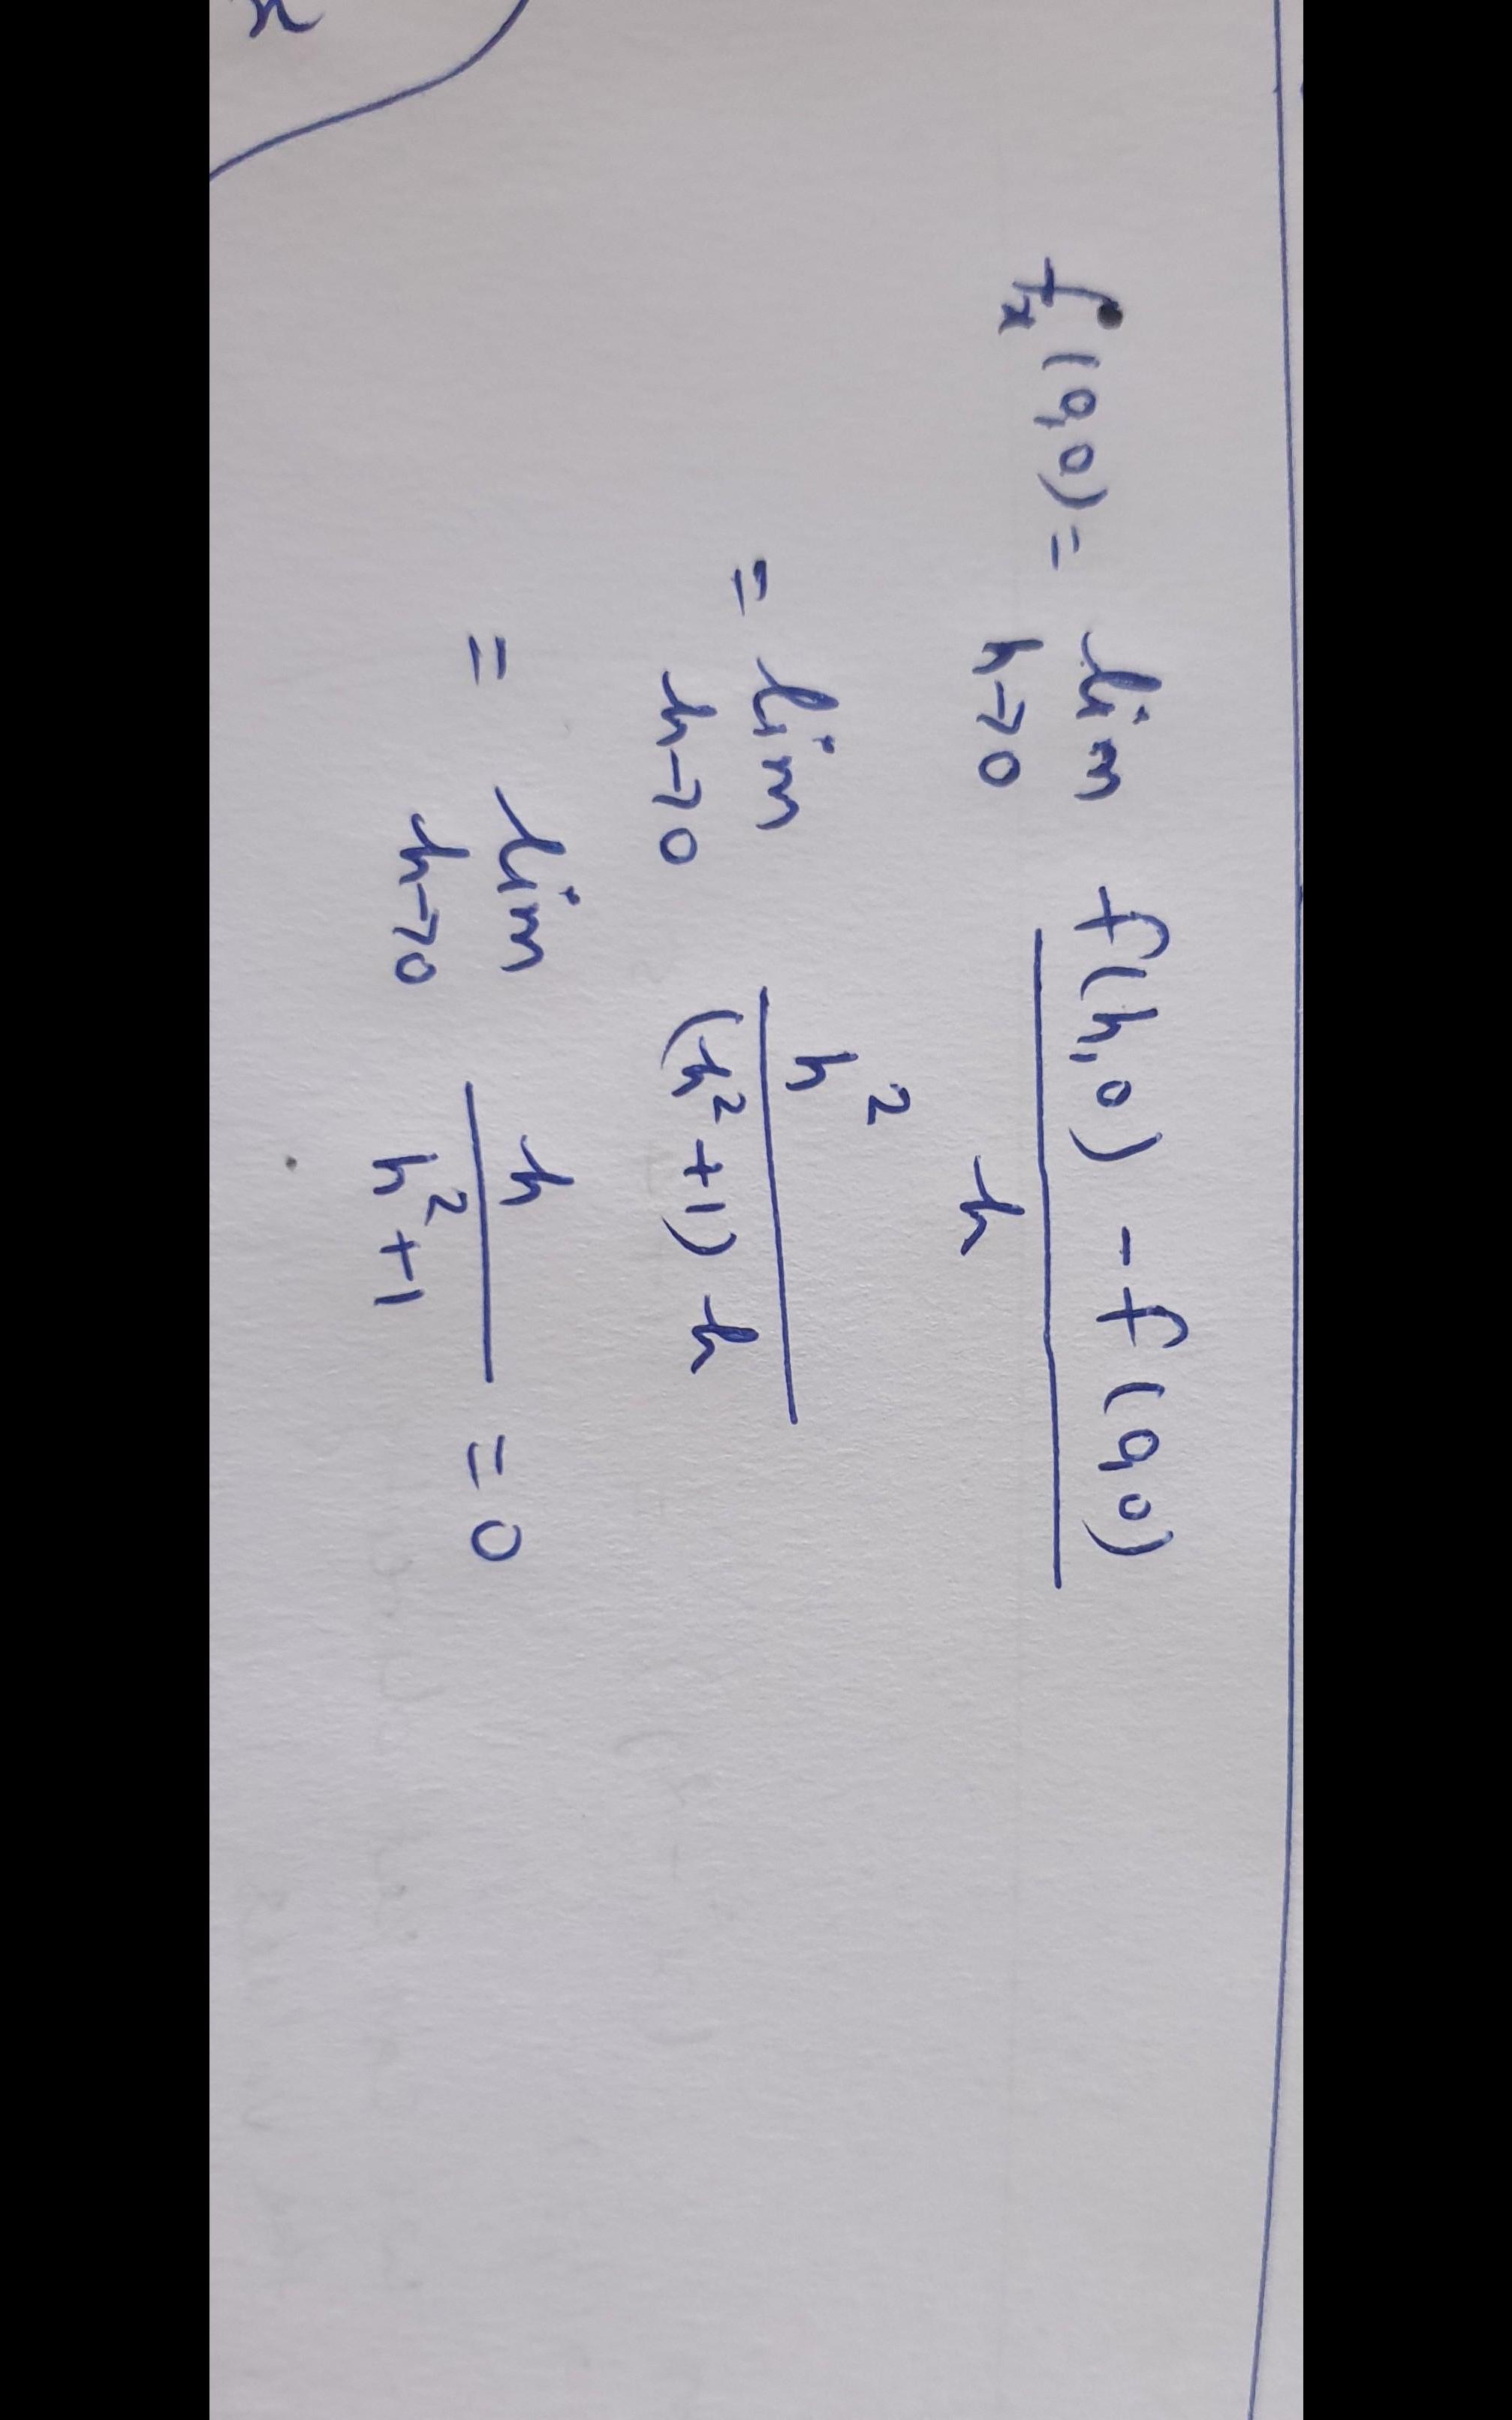 x
fₓ(0,0) = lim h→0 (f(h,0) - f(0,0)) / h
= lim h→0 h² / ((h²+1) h)
= lim h→0 h / (h²+1) = 0